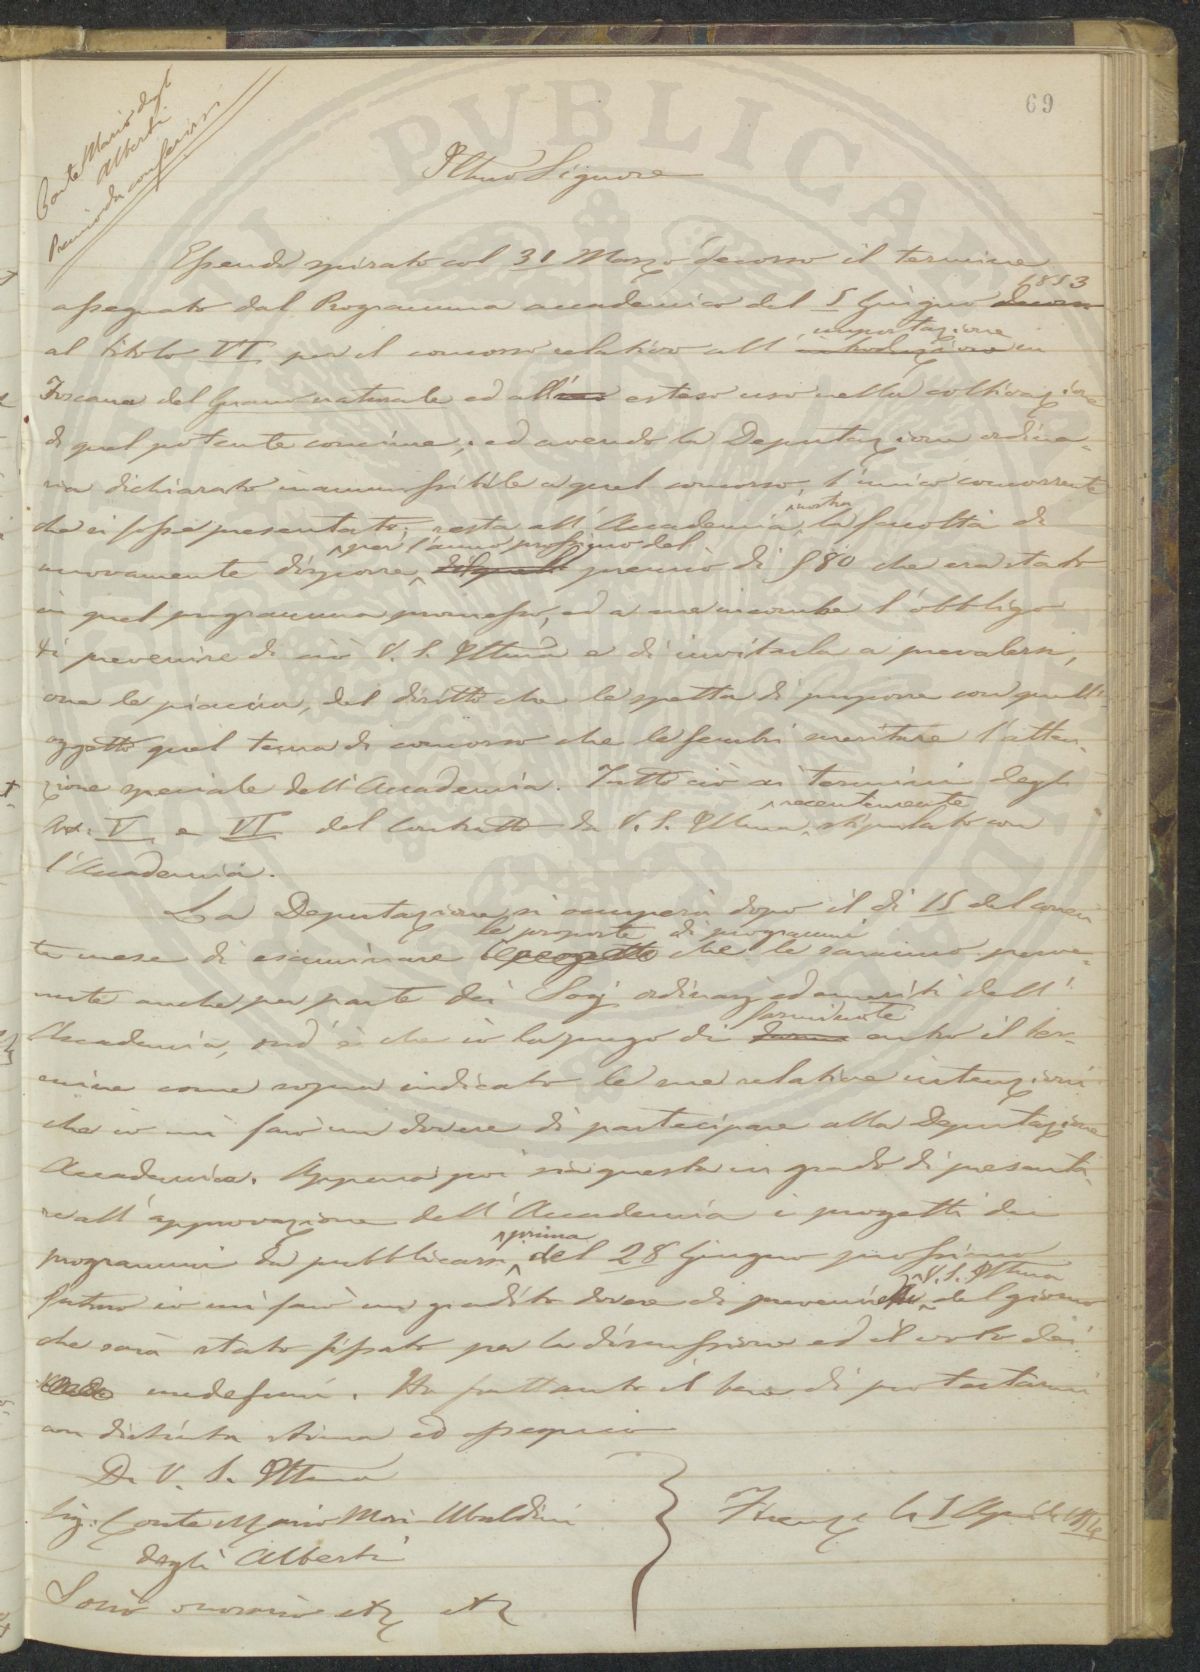 69
Conte Mario degli
Alberti
Premio da conferirsi
Illmo Signore
Essendo spirato col 31 Marzo decorso il termine
1853
assegnato dal Programma accademico del 5 Giugno decorso
importazione
al titolo VI per il concorso relativo all' introduzione in
Toscana del Guano naturale ed all' esteso uso nella coltivazione
di quel potente concime, ed avendo la Deputazione ordina-
ria dichiarato inammissibile a quel concorso l'unico concorrente
che si fosse presentato; resta all' Accademia nostra la facoltà di
per l'anno prossimo del
nuovamente disporre di quel premio di £ 80 che era stato
in quel programma promesso, ed a me incombe l'obbligo
di prevenire di ciò V. S. Illma e di invitarla a prevalersi,
ove le piaccia, del diritto che le spetta di proporre con quell'
oggetto quel tema di concorso che le sembri meritare l'atten-
zione speciale dell' Accademia. Tutto ciò ai termini degli
recentemente
Art: V e VI del Contratto da V. S. Illma stipulato con
l'Accademia.
La Deputazione si occuperà dopo il dì 15 del corren
le proposte di programmi
te mese di esaminare i progetti che le saranno perve-
nute anche per parte dei Socj ordinarj ed emeriti dell'
Accademia, ond' è che io la prego di farmi note entro il ter-
mine come sopra indicato le sue relative intenzioni
che io mi farò un dovere di partecipare alla Deputazione
Accademica. Appena poi sia questa in grado di presenta-
re all' approvazione dell' Accademia i progetti dei
prima
programmi da pubblicarsi del 28 Giugno prossimo
V. S. Illma
futuro io mi farò un gradito dovere di prevenire del giorno
che sarà stato fissato per la discussione ed il voto dei
medesimi. Ho frattanto il bene di protestarmi
con distinta stima ed ossequio
Di V. S. Illma
Sig: Conte Mario Mori Ubaldini
degli Alberti
Socio onorario etc etc
Firenze li 5 Aprile 1854